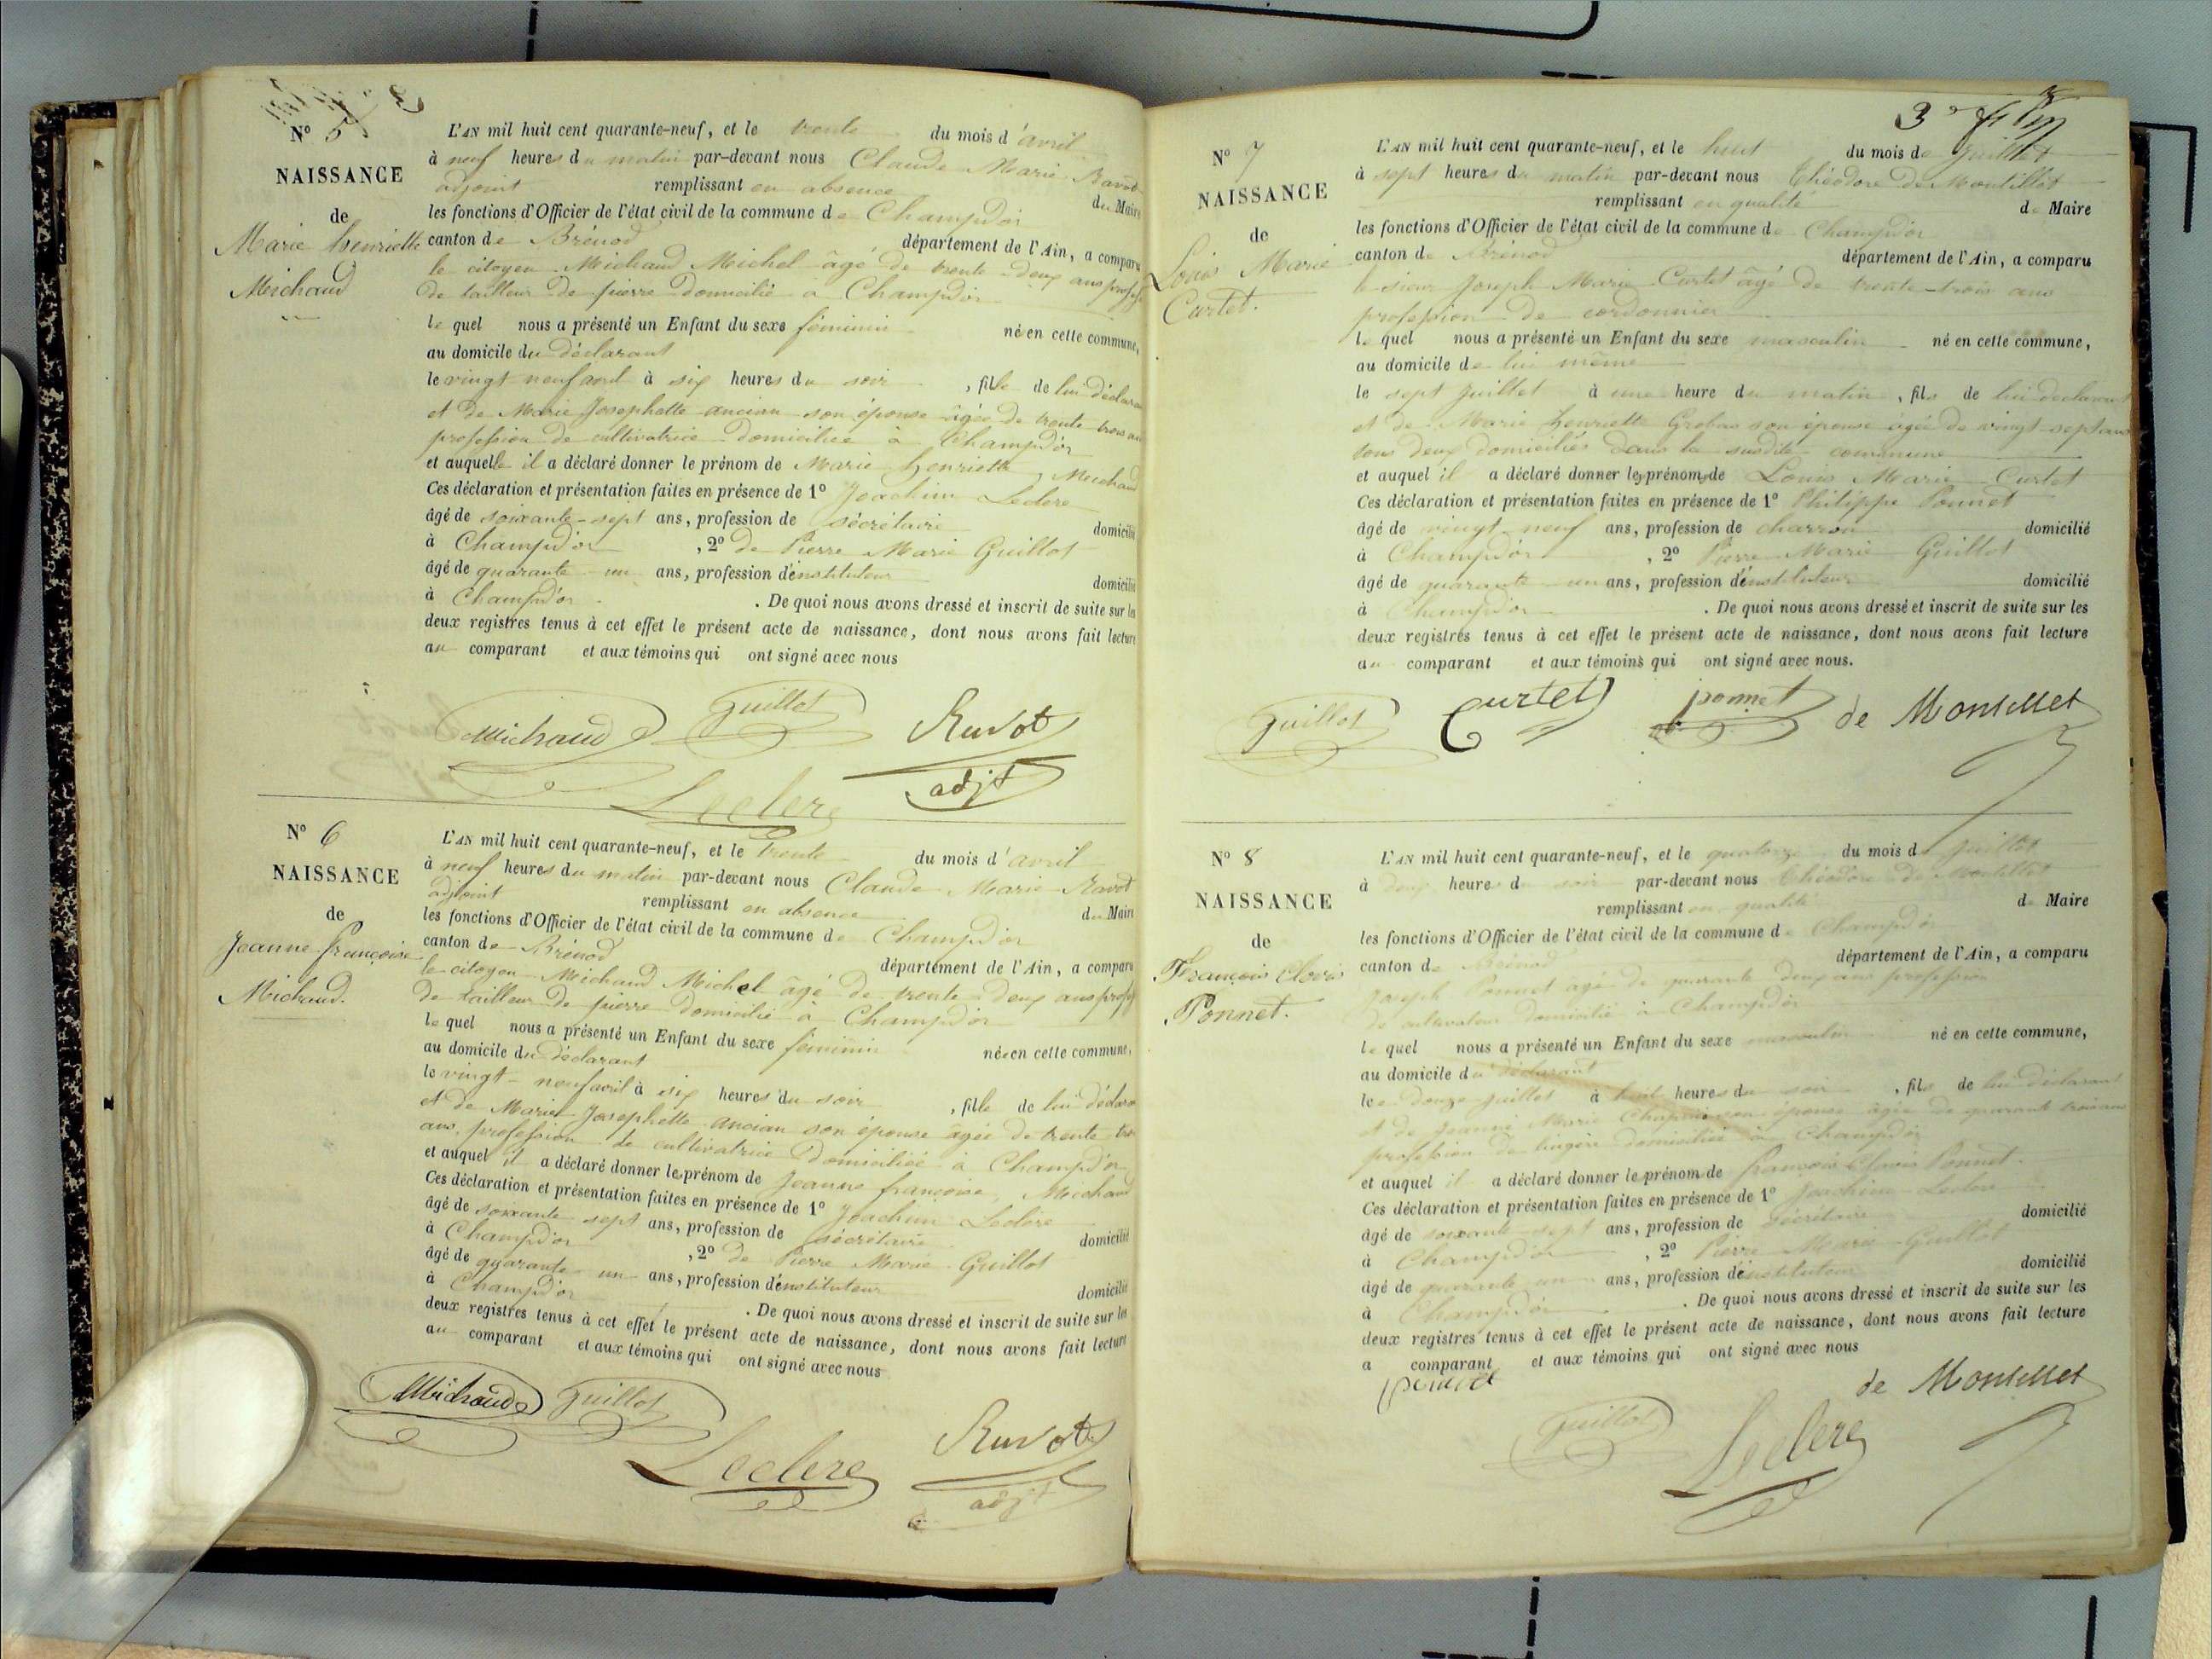 Nº 5
NAISSANCE
de
Marie henriette
Michaud
L'AN mil huit cent quarante-neuf, et le trente du mois d'avril
à neuf heures du matin par-devant nous Claude Marie Ravot
adjoint remplissant en absence du Maire
les fonctions d'Officier de l'état civil de la commune de Champdor
canton de Brénod département de l'Ain, a comparu
le citoyen Michaud Michel âgé de trente-deux ans profess
de tailleur de pierre domicilié à Champdor
le quel nous a présenté un Enfant du sexe féminin né en cette commune,
au domicile du déclarant
le vingt neuf avril à six heures du soir , fille de lui déclara
et de Marie Josephette ancian son épouse âgée de trente trois an
profession de cultivatrice domiciliée à Champdor
et auquelle il a déclaré donner le prénom de Marie henriette Michaud
Ces déclaration et présentation faites en présence de 1º Joachim Leclere
âgé de soixante-sept ans, profession de sécrétaire domicilié
à Champdor , 2º de Pierre Marie Guillot
âgé de quarante un ans, profession d'instituteur domicilié
à Champdor . De quoi nous avons dressé et inscrit de suite sur les
deux registres tenus à cet effet le présent acte de naissance, dont nous avons fait lecture
au comparant et aux témoins qui ont signé avec nous
Michaud Guillot Ravot
Leclere adjt
Nº 6
NAISSANCE
de
Jeanne françoise
Michaud.
L'AN mil huit cent quarante-neuf, et le trente du mois d'avril
à neuf heures du matin par-devant nous Claude Marie Ravot
adjoint remplissant en absence du Maire
les fonctions d'Officier de l'état civil de la commune de Champdor
canton de Brénod département de l'Ain, a comparu
le citoyen Michaud Michel âgé de trente-deux ans profess
de tailleur de pierre domicilié à Champdor
le quel nous a présenté un Enfant du sexe féminin née en cette commune,
au domicile du déclarant
le vingt-neuf avril à six heures du soir , fille de lui déclara
et de Marie Josephette ancian son épouse âgée de trente tro
ans, profession de cultivatrice domiciliée à Champdor
et auquel il a déclaré donner les prénom de Jeanne françoise Michaud
Ces déclaration et présentation faites en présence de 1º Joachim Leclère
âgé de soixante sept ans, profession de sécrétaire domicilié
à Champdor , 2º de Pierre Marie Guillot
âgé de quarante un ans, profession d'instituteur domicilié
à Champdor . De quoi nous avons dressé et inscrit de suite sur les
deux registres tenus à cet effet le présent acte de naissance, dont nous avons fait lecture
au comparant et aux témoins qui ont signé avec nous
Michaud Guillot
Leclere Ravot
adjt
3
Nº 7
NAISSANCE
de
Louis Marie
Curtet.
L'AN mil huit cent quarante-neuf, et le huit du mois de Juillet
à sept heures du matin par-devant nous Théodore de Montillet
remplissant en qualité de Maire
les fonctions d'Officier de l'état civil de la commune de Champdor
canton de Brénod département de l'Ain, a comparu
le sieur Joseph Marie Curtet âgé de trente-trois ans
profession de cordonnier
le quel nous a présenté un Enfant du sexe masculin né en cette commune,
au domicile de lui même
le sept Juillet à une heure du matin , fils de lui déclarant
et de Marie henriette Grobas son épouse âgée de vingt-sept ans
tous deux domiciliés dans la susdite commune
et auquel il a déclaré donner les prénoms de Louis Marie Curtet
Ces déclaration et présentation faites en présence de 1º Philippe Ponnet
âgé de vingt neuf ans, profession de charron domicilié
à Champdor , 2º Pierre Marie Guillot
âgé de quarante un ans, profession d'instituteur domicilié
à Champdor . De quoi nous avons dressé et inscrit de suite sur les
deux registres tenus à cet effet le présent acte de naissance, dont nous avons fait lecture
au comparant et aux témoins qui ont signé avec nous.
Guillot Curtet ponnet de Montillet
Nº 8
NAISSANCE
de
François Clovis
Ponnet.
L'AN mil huit cent quarante-neuf, et le quatorze du mois de juillet
à deux heures du soir par-devant nous Théodore de Montillet
remplissant en qualité de Maire
les fonctions d'Officier de l'état civil de la commune de Champdor
canton de Brénod département de l'Ain, a comparu
Joseph Ponnet âgé de quarante deux ans profession
de cultivateur domicilié à Champdor
le quel nous a présenté un Enfant du sexe masculin né en cette commune,
au domicile du déclarant
le douze juillet à huit heures du soir , fils de lui déclarant
et de Jeanne Marie son épouse âgée de quarante trois ans
profession de lingère domiciliée à Champdor
et auquel il a déclaré donner le prénom de françois Clovis Ponnet.
Ces déclaration et présentation faites en présence de 1º Joachim Leclere
âgé de soixante-sept ans, profession de sécrétaire domicilié
à Champdor , 2º Pierre Marie Guillot
âgé de quarante un ans, profession d'instituteur domicilié
à Champdor . De quoi nous avons dressé et inscrit de suite sur les
deux registres tenus à cet effet le présent acte de naissance, dont nous avons fait lecture
a comparant et aux témoins qui ont signé avec nous
ponnet de Montillet
Guillot Leclere